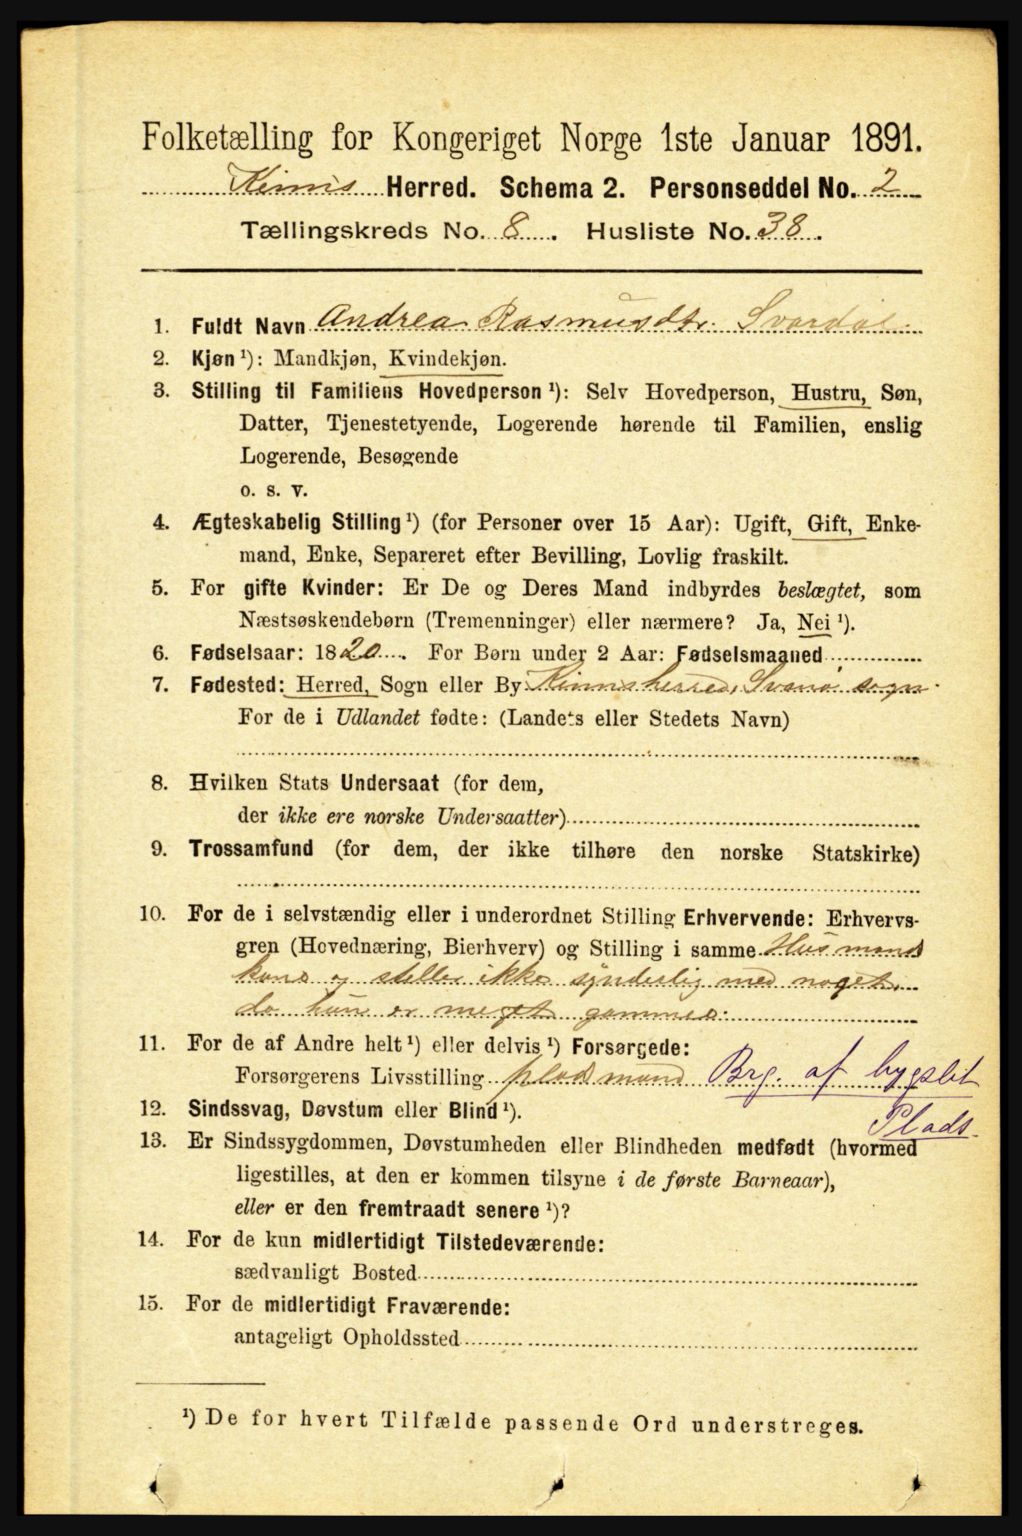 Folketælling for Kongeriget Norge 1ste Januar 1891.
Kinns Herred. Schema 2. Personseddel No. 2
Tællingskreds No. 8. Husliste No. 38.
1. Fuldt Navn Andrea Rasmusdtr. Svardal
2. Kjøn ¹): Mandkjøn, Kvindekjøn.
3. Stilling til Familiens Hovedperson ¹): Selv Hovedperson, Hustru, Søn,
Datter, Tjenestetyende, Logerende hørende til Familien, enslig
Logerende, Besøgende
o. s. v.
4. Ægteskabelig Stilling ¹) (for Personer over 15 Aar): Ugift, Gift, Enke-
mand, Enke, Separeret efter Bevilling, Lovlig fraskilt.
5. For gifte Kvinder: Er De og Deres Mand indbyrdes beslægtet, som
Næstsøskendebørn (Tremenninger) eller nærmere? Ja, Nei ¹).
6. Fødselsaar: 1820. For Børn under 2 Aar: Fødselsmaaned
7. Fødested: Herred, Sogn eller By Kinnsherred, Svanø sogn.
For de i Udlandet fødte: (Landets eller Stedets Navn)
8. Hvilken Stats Undersaat (for dem,
der ikke ere norske Undersaatter)
9. Trossamfund (for dem, der ikke tilhøre den norske Statskirke)
10. For de i selvstændig eller i underordnet Stilling Erhvervende: Erhvervs-
gren (Hovednæring, Bierhverv) og Stilling i samme Husmands
kone og steller ikke synderlig med noget,
da hun er meget gammel.
11. For de af Andre helt ¹) eller delvis ¹) Forsørgede:
Forsørgerens Livsstilling pladsmand Brg. af bygslet
Plads.
12. Sindssvag, Døvstum eller Blind ¹).
13. Er Sindssygdommen, Døvstumheden eller Blindheden medfødt (hvormed
ligestilles, at den er kommen tilsyne i de første Barneaar),
eller er den fremtraadt senere ¹)?
14. For de kun midlertidigt Tilstedeværende:
sædvanligt Bosted
15. For de midlertidigt Fraværende:
antageligt Opholdssted
¹) De for hvert Tilfælde passende Ord understreges.